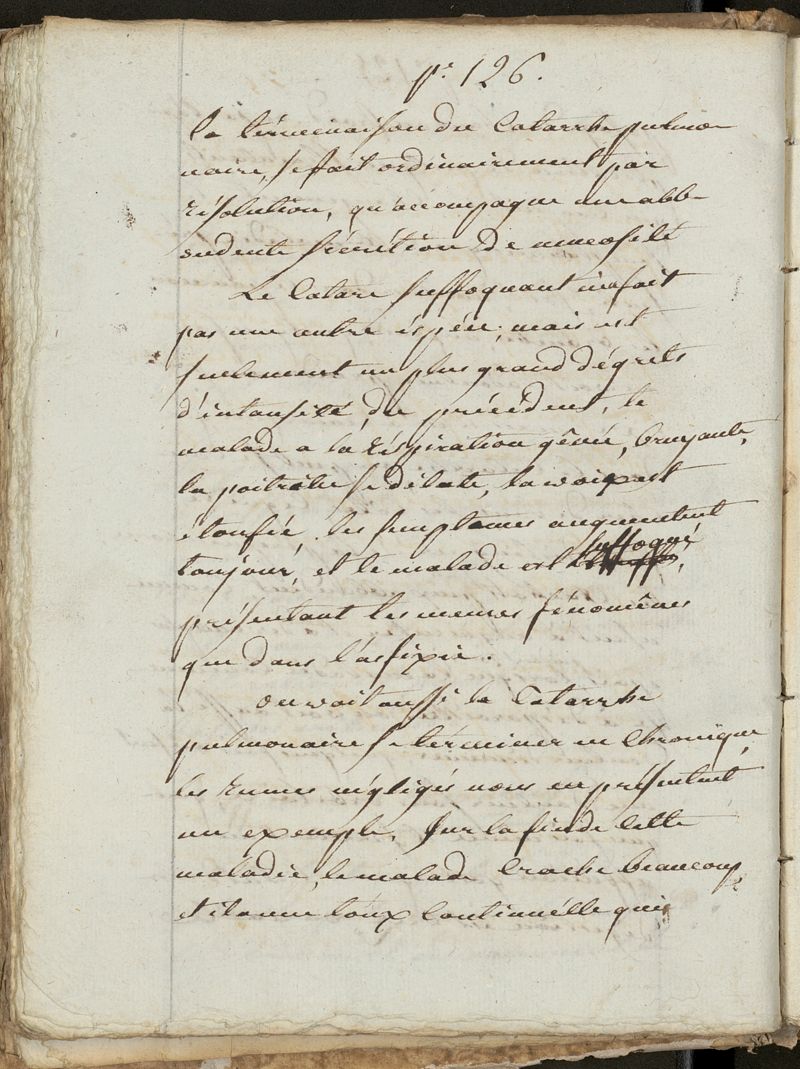 pe. 126.
la términaison du Catarrhe pulmo-
naire, se fait ordinairement par
résolution, qu'accompagne une abb-
ondente sécrétion de mucosité
Le Catare suffoquant n'en fait
pas une autre éspéce, mais est
seulement un plus grand dégrets
d'intansité du précédent, le
malade a la réspiration gênée, bruyante,
la poitrine se dilate, la voix est
étoufée, les semptomes augmentent
toujour, et le malade est suffoqué,
présentant les memes fénomènes
que dans l'asfixie.
on voit aussi le Catarrhe
pulmonaire se términer en Chronique
les rumes négligés nous en présentent
un exemple. Sur la fin de cette
maladie, le malade Crache beaucoup
et il a une toux Continuélle qui